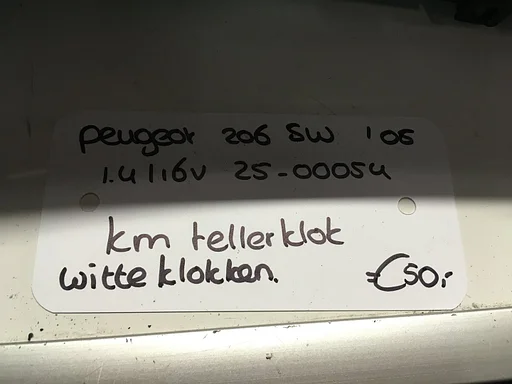 Peugeot 206 SW '05
1.4 16v 25-00054
km tellerklok
witte klokken. €50,-